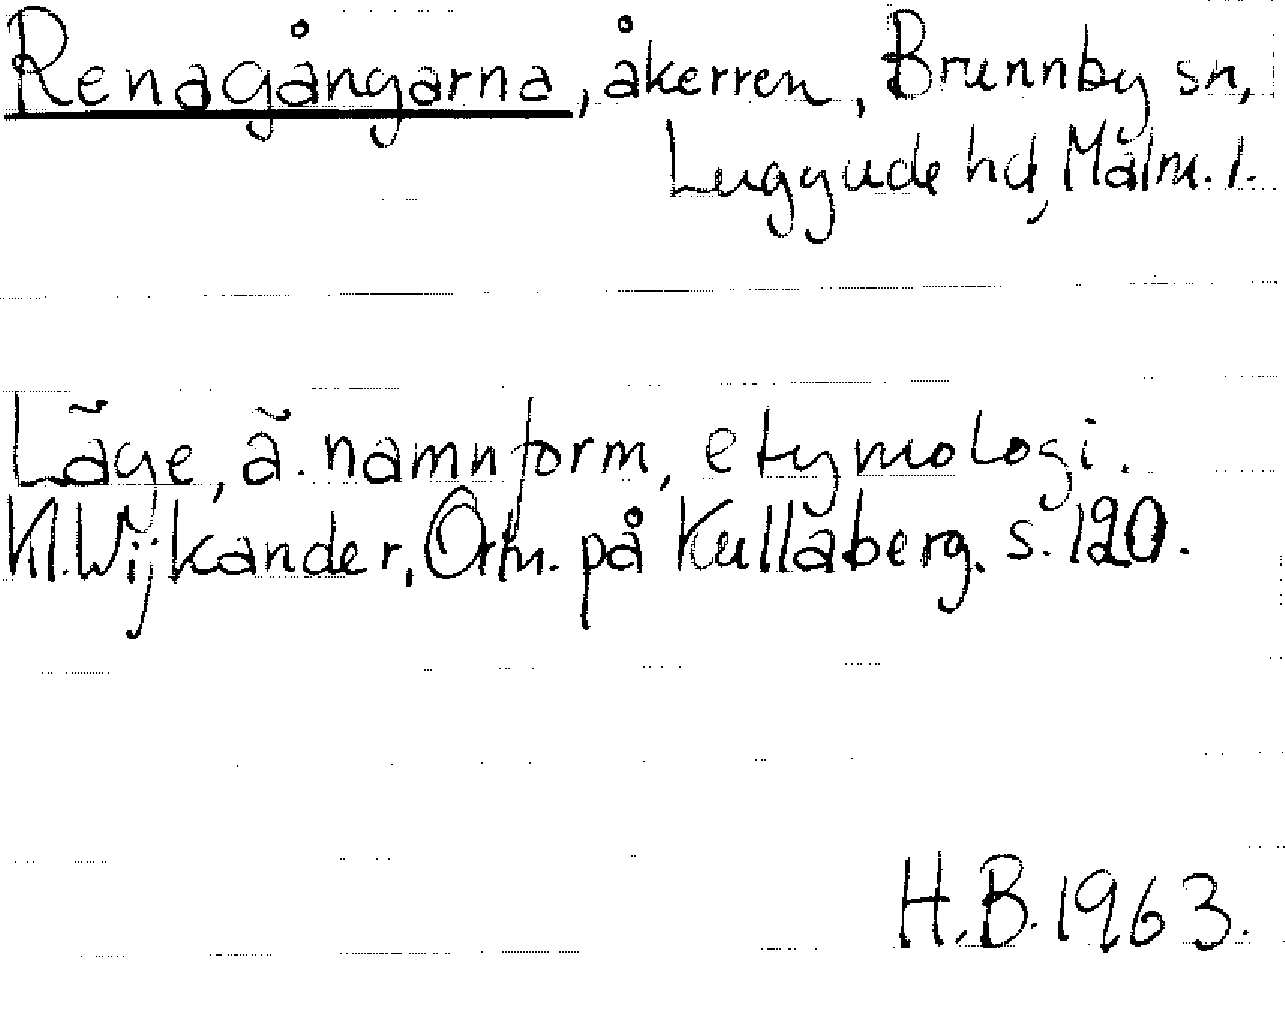 Renagångarna, åkerren, Brunnby sn,
Luggude hd, Malm. l.
Läge, ä. namnform, etymologi.
Kl. Wijkander, Ortn. på Kullaberg. s. 120.
H.B. 1963.